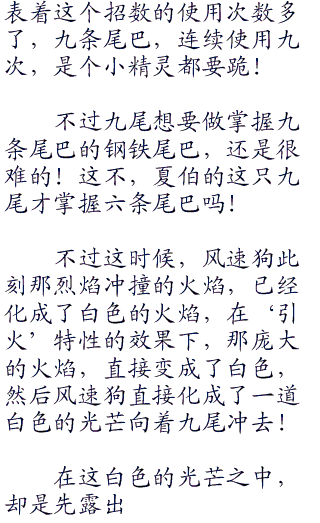 表着这个招数的使用次数多
了，九条尾巴，连续使用九
次，是个小精灵都要跪！
不过九尾想要做掌握九
条尾巴的钢铁尾巴，还是很
难的！这不，夏伯的这只九
尾才掌握六条尾巴吗！
不过这时候，风速狗此
刻那烈焰冲撞的火焰，已经
化成了白色的火焰，在‘引
火’特性的效果下，那庞大
的火焰，直接变成了白色，
然后风速狗直接化成了一道
白色的光芒向着九尾冲去！
在这白色的光芒之中，
却是先露出